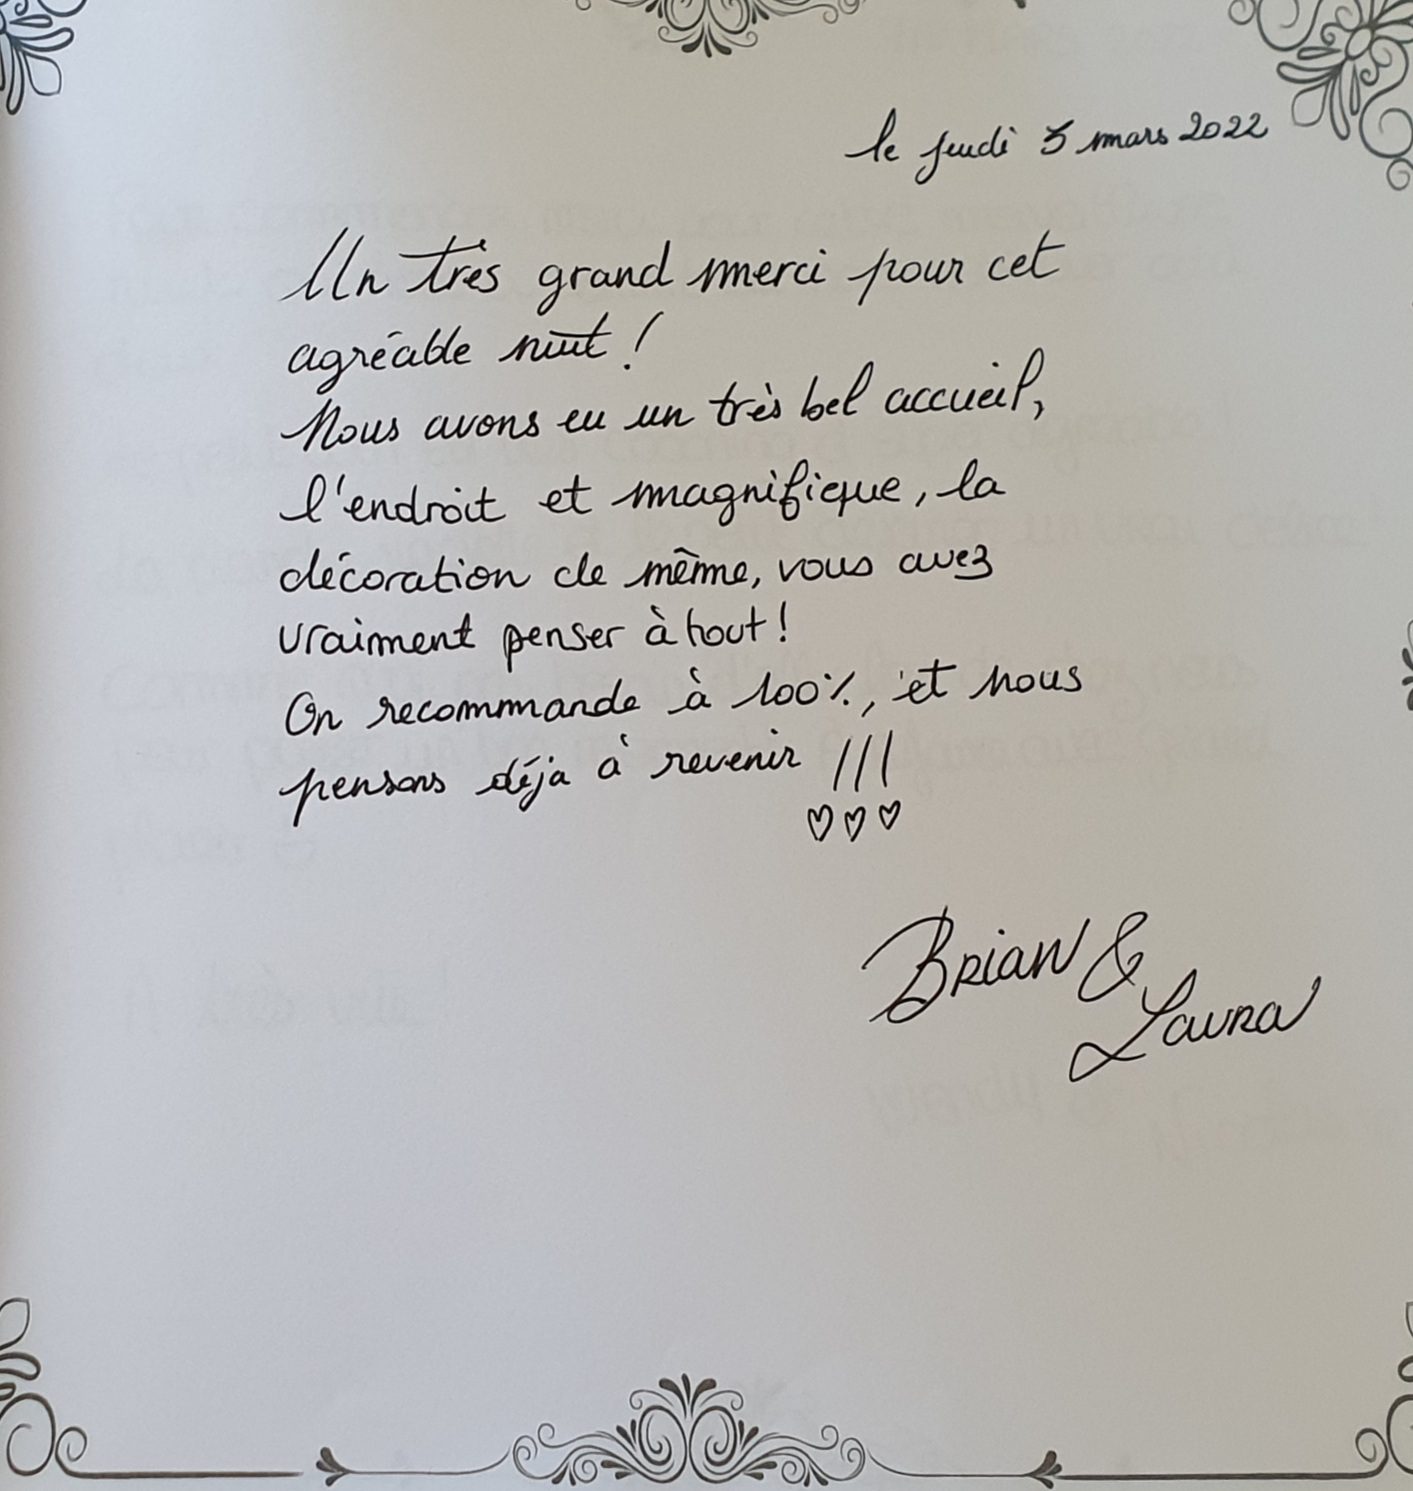 le jeudi 3 mars 2022
Un très grand merci pour cet
agréable nuit !
Nous avons eu un très bel accueil,
l'endroit et magnifique, la
décoration de même, vous avez
vraiment penser à tout !
On recommande à 100%, et nous
pensons déja à revenir !!!
♡♡♡
Brian &
Laura